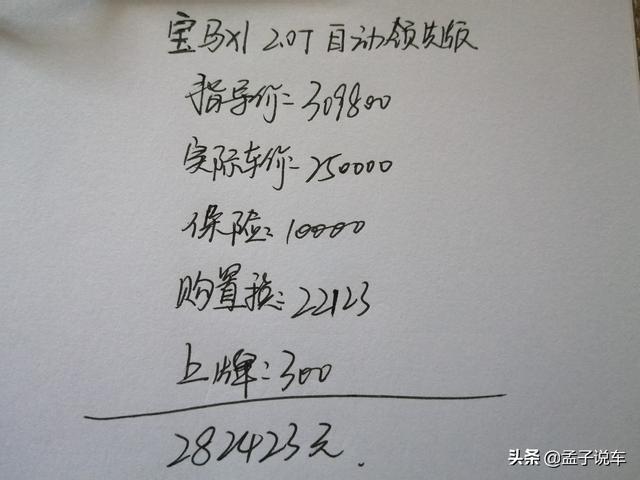 宝马X1 2.0T 自动领先版
指导价=309800
实际车价=250000
保险:10000
购置税:22123
上牌:300
282423元.
头条 @孟子说车